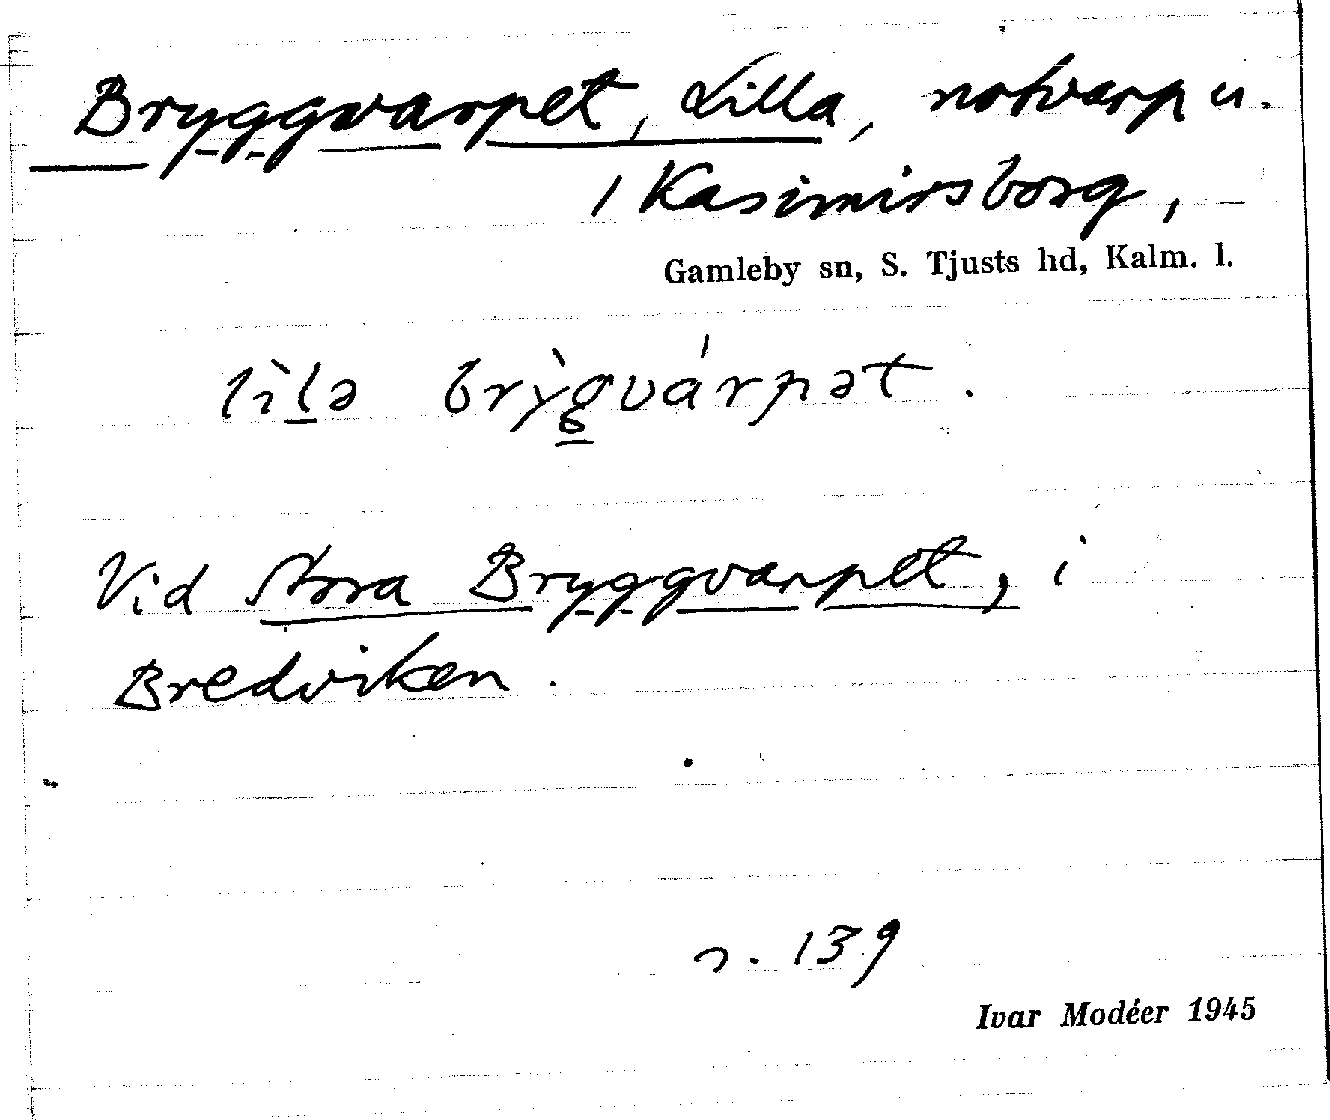 Bryggvarpet, Lilla, notvarp u.
/ Kasimirsborg,
Gamleby sn, S. Tjusts hd, Kalm. l.
lìlə brỳgvárpət.
Vid Stora Bryggvarpet, i
Bredviken.
s. 139
Ivar Modéer 1945